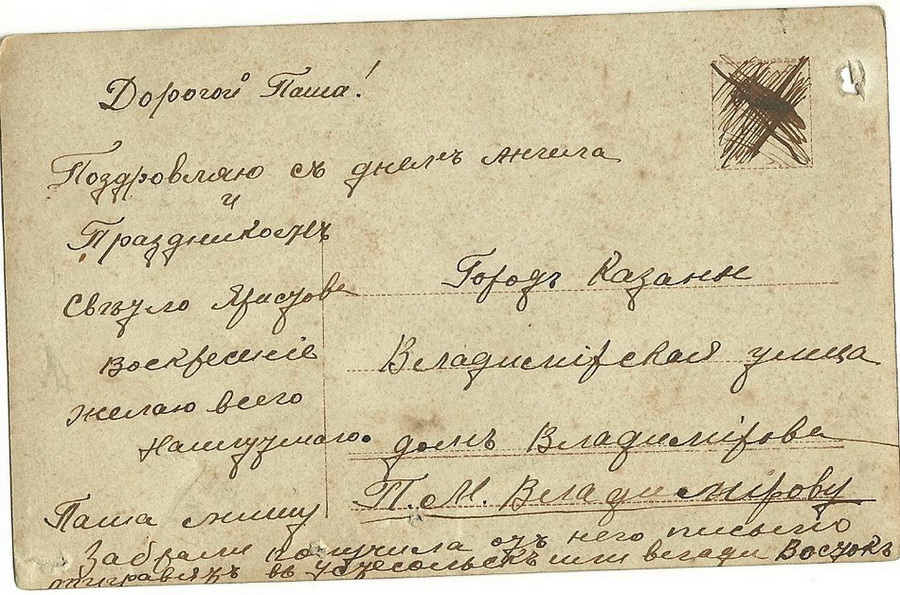 Дорогой Паша!
Поздровляю съ днемъ Ангила
и
Праздникомъ
Свѣтло Христове
Воскресеніе
Желаю всего
Наилутшаго.
Городъ Казань
Владимірская улица
домъ Владимірова
П. М. Владимірову
Паша мишу
Забрали получила отъ него письмо
отправятъ въ Устсольскъ или Востокъ